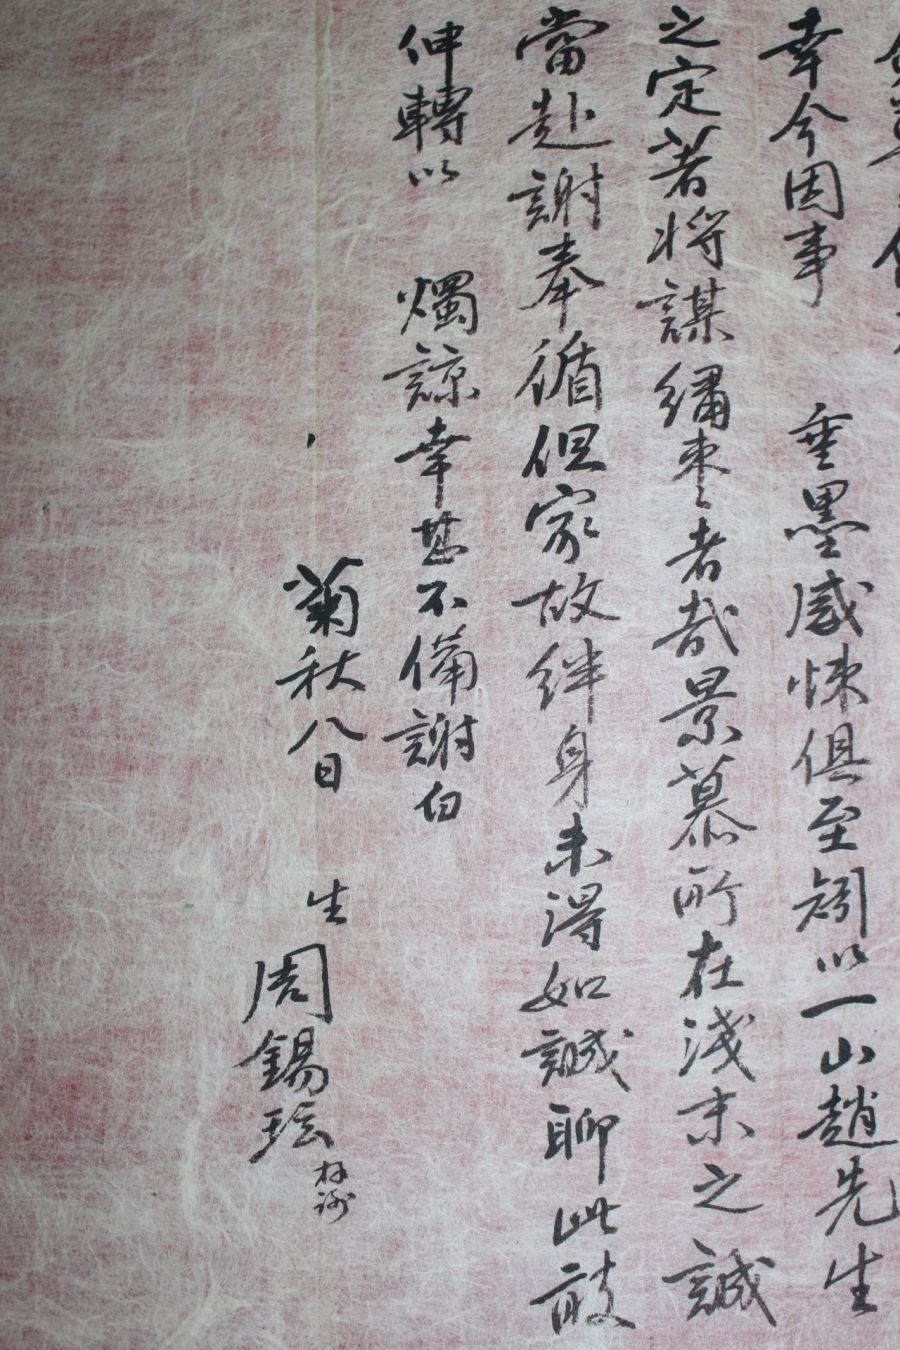 幸今因事 垂墨感悚俱至矧以一山趙先生
之定著將謀繡棗者哉景慕所在淺末之誠
當赴謝奉循但家故絆身未得如誠聊此敲
伸轉以 燭諒幸甚不備謝白
菊秋八日 生 周錫
拜謝